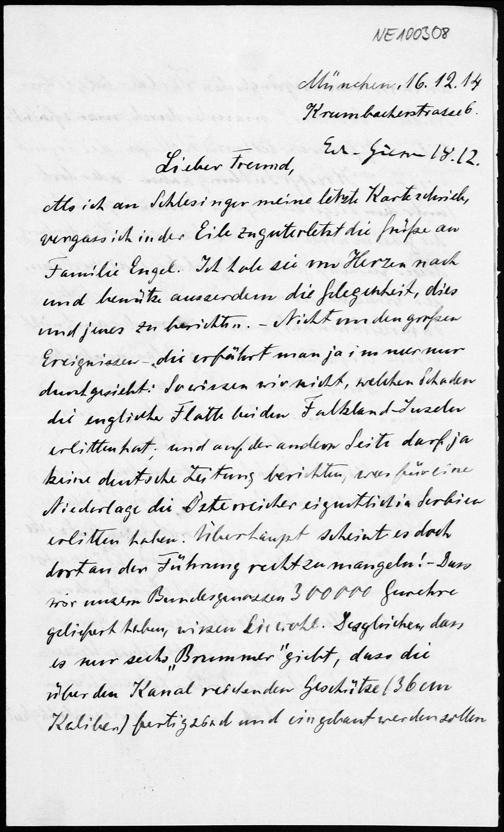 NE100308
München, 16.12.14
Krumbacherstrasse 6.
18.12.
Lieber Freund,
Als ich an Schlesinger meine letzte Karte schrieb,
vergass ich in der Eile zuguterletzt die Grüße an
Familie Engel. Ich hole sie von Herzen nach
und benütze ausserdem die Gelegenheit, dies
und jenes zu berichten. – Nicht von den großen
Ereignissen – die erfährt man ja immer nur
durchgesiebt: So wissen wir nicht, welchen Schaden
die englische Flotte bei den Falkland-Inseln
erlitten hat. und auf der andern Seite darf ja
keine deutsche Zeitung berichten, was für eine
Niederlage die Österreicher eigentlich in Serbien
erlitten haben. Überhaupt scheint es doch
dort an der Führung recht zu mangeln! – Dass
wir unsern Bundesgenossen 300000 Gewehre
geliefert haben, wissen Sie wohl. Desgleichen, dass
es nur sechs „Brummer" giebt, dass die
über den Kanal reichenden Geschütze (36 cm
Kaliber) fertig sind und eingebaut werden sollen